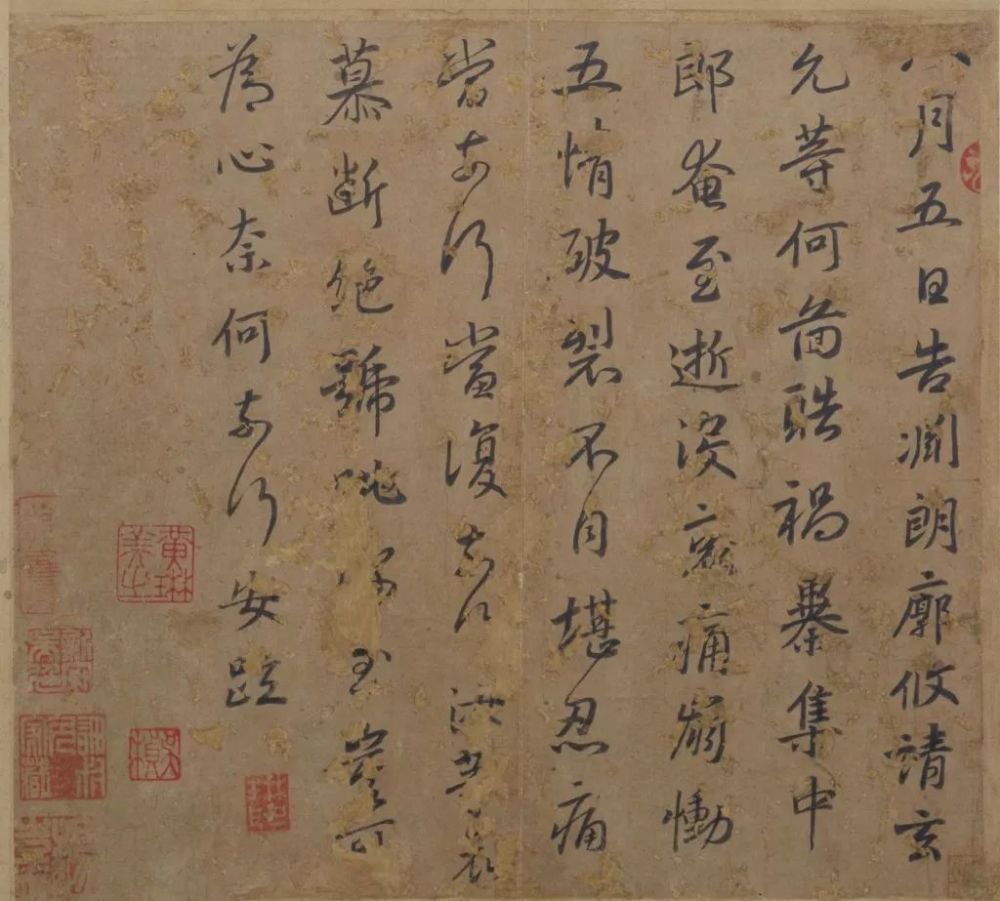 八月五日告渊朗廓攸靖玄
允等何图酷祸暴集中
郎奄至逝没哀痛崩恸
五情破裂不自堪忍痛
当奈何当复奈何汝等哀
慕断绝号咷深至岂可
为心奈何奈何安疏